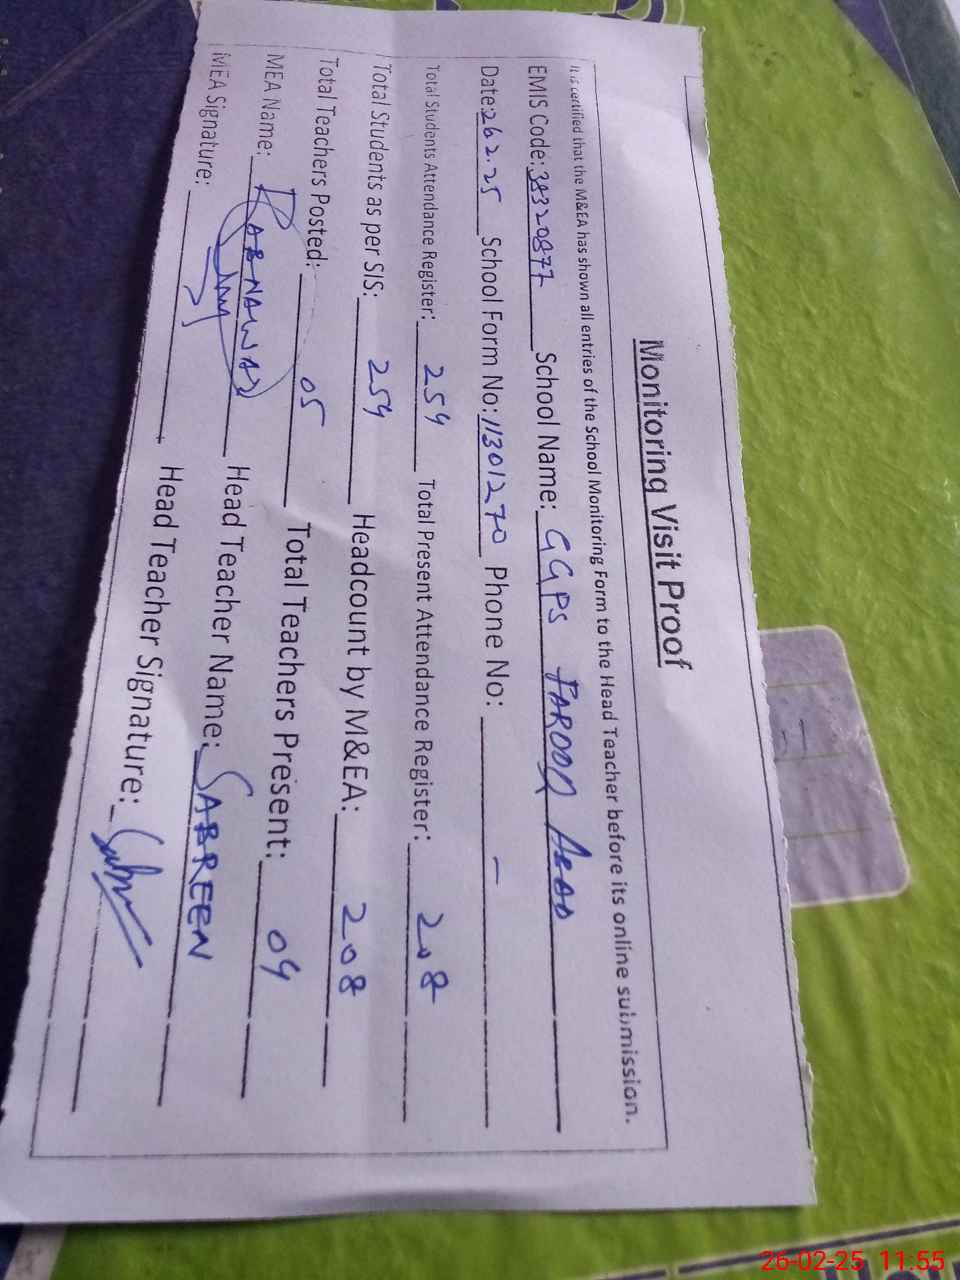 Monitoring Visit Proof
It is certified that the M&EA has shown all entries of the School Monitoring Form to the Head Teacher before its online submission.
EMIS Code: 38320877 School Name: GGPS FAROOQ ABAD
Date: 26 2.25 School Form No: 11301270 Phone No: –
Total Students Attendance Register: 259 Total Present Attendance Register: 208
Total Students as per SIS: 259 Headcount by M&EA: 208
Total Teachers Posted: 05 Total Teachers Present: 04
MEA Name: RABNAWAZ Head Teacher Name: SABREEN
MEA Signature: Head Teacher Signature:
26-02-25 11:55